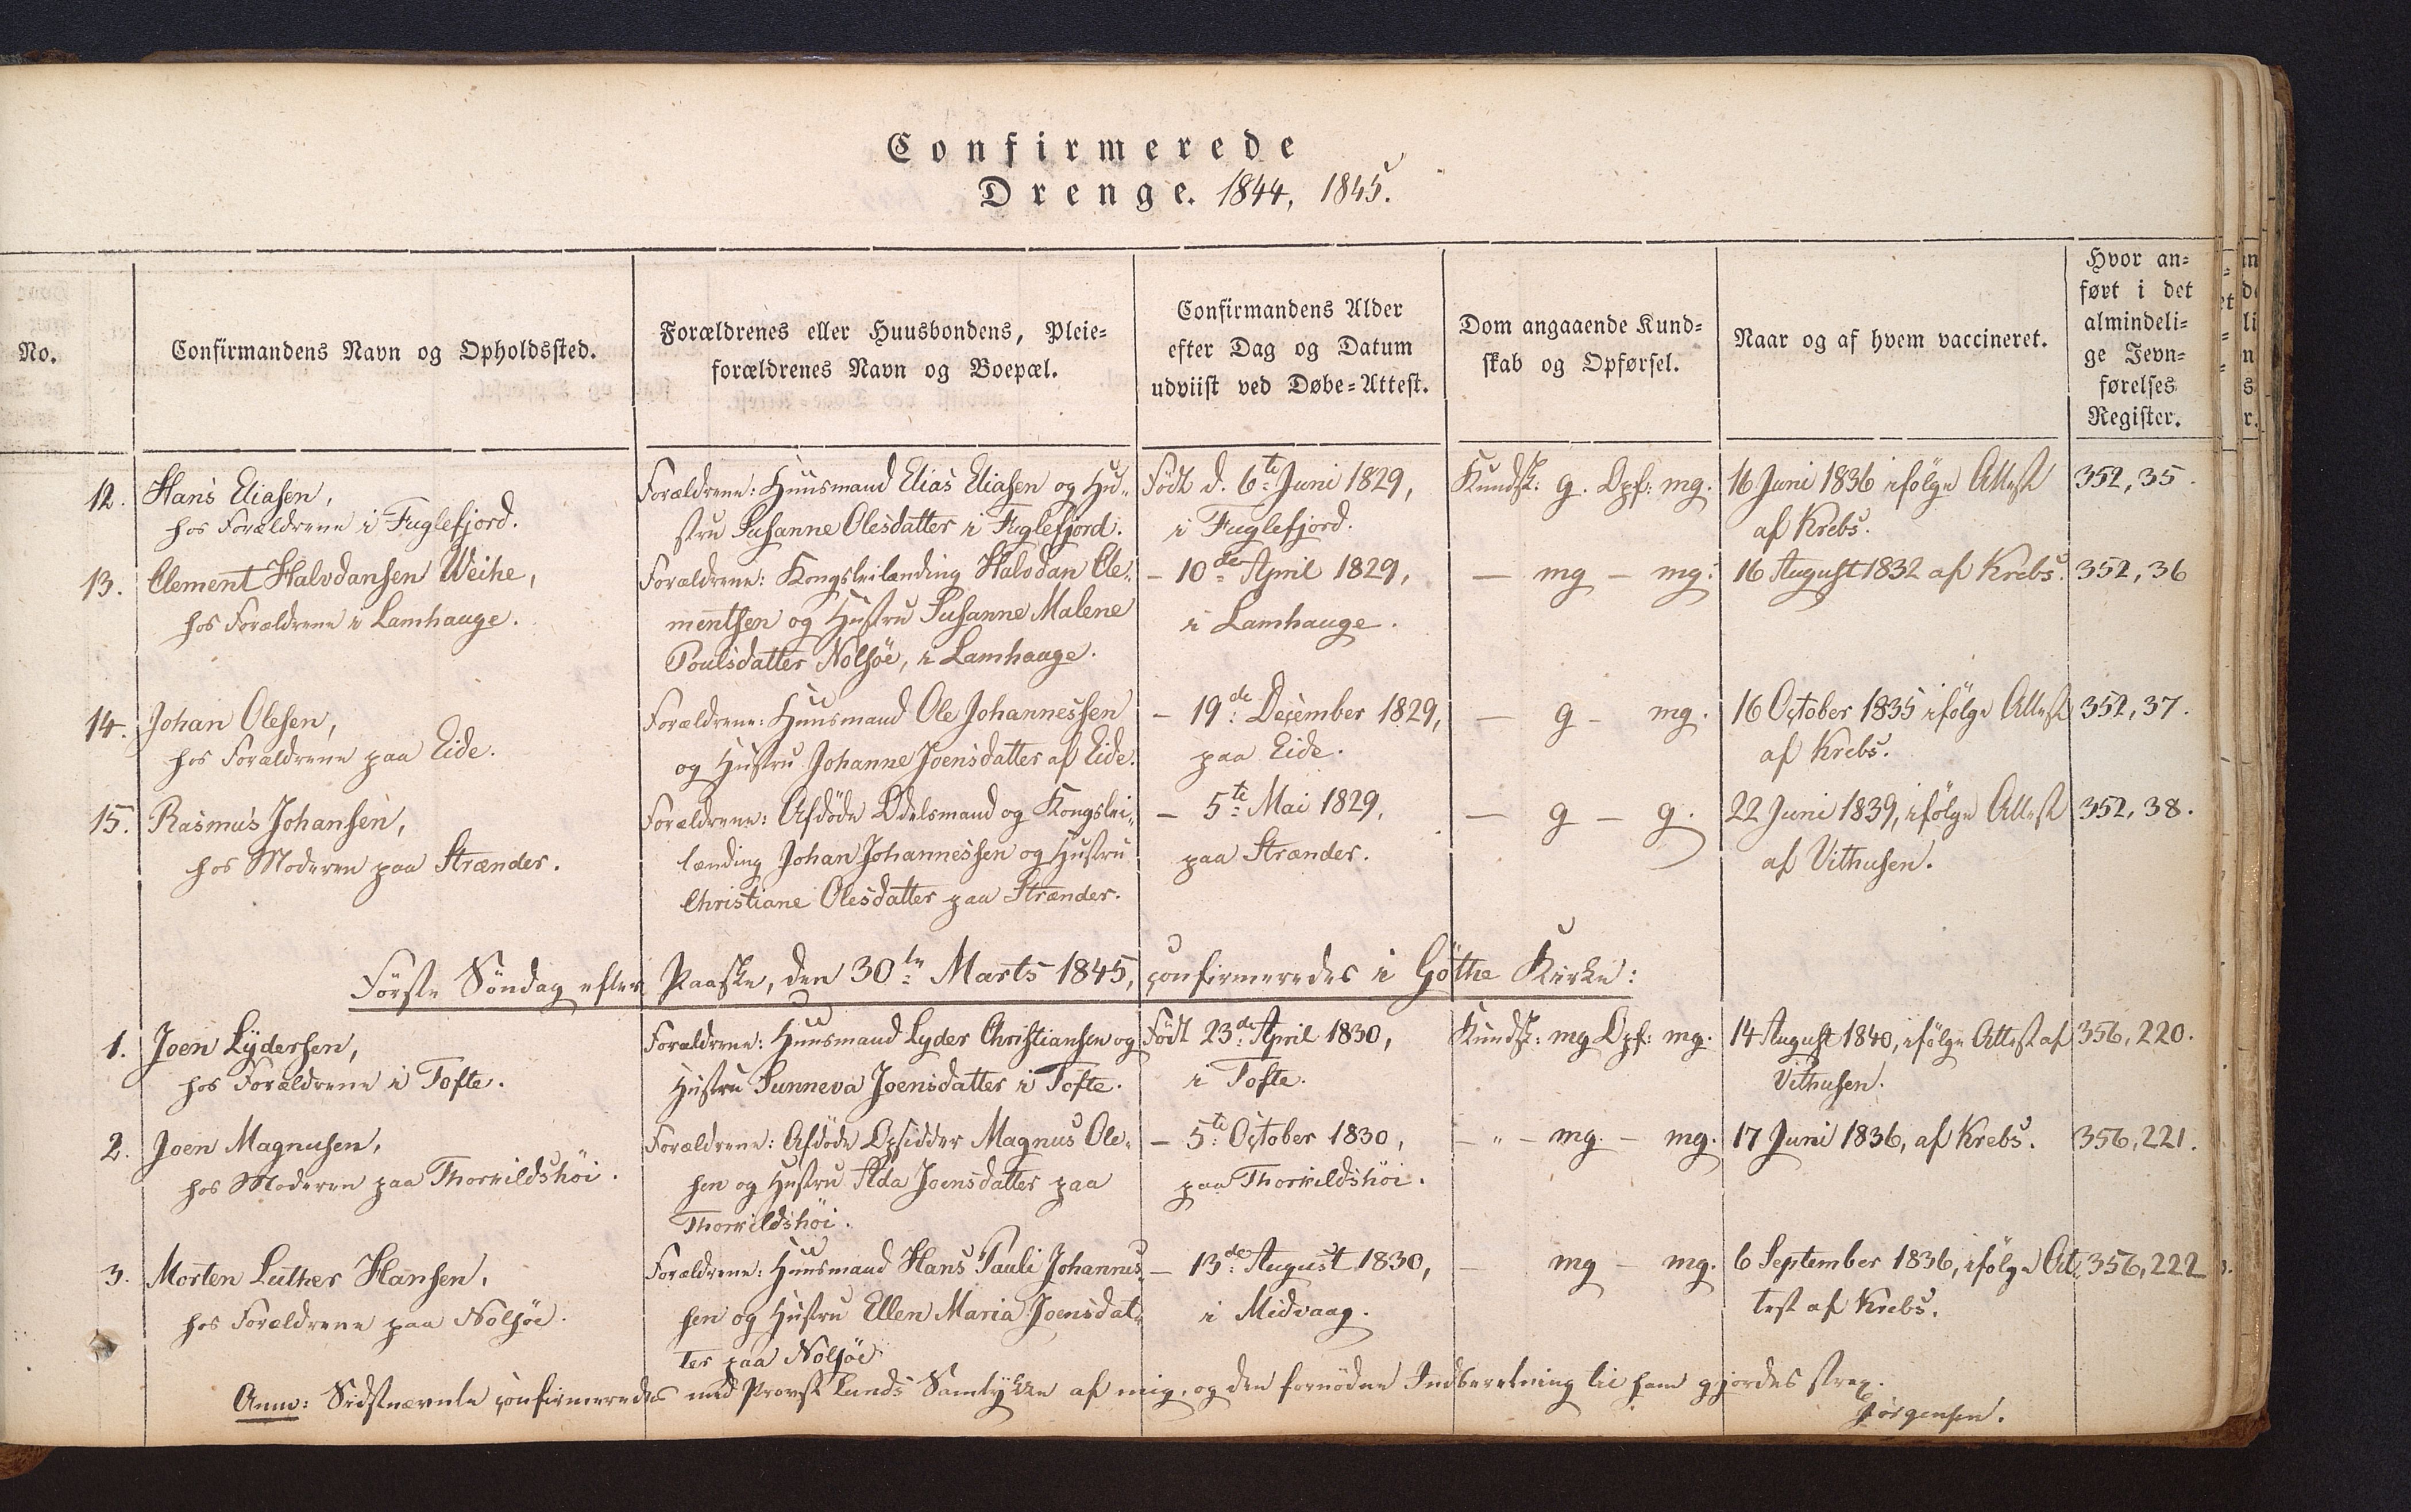 Confirmerede
Drenge. 1844, 1845.
No.
Confirmandens Navn og Opholdssted.
Forældrenes eller Huusbondens, Pleie=
forældrenes Navn og Boepæl.
Confirmandens Alder
efter Dag og Datum
udviist ved Døbe=Attest.
Dom angaaende Kund=
skab og Opførsel.
Naar og af hvem vaccineret.
Hvor an=
ført i det
almindeli=
ge Jevn=
førelses
Register.
12.
Hans Eliasen,
hos Forældrene i Fuglefjord.
Forældrene: Huusmand Elias Eliasen og Hu-
stru Susanne Olesdatter i Fuglefjord.
Født d. 6te Juni 1829,
i Fuglefjord.
Kundsk: g. Opf: mg.
16 Juni 1836 ifölge Attest
af Krebs.
352, 35.
13.
Clement Halvdansen Weihe,
hos Forældrene i Lamhauge.
Forældrene: Kongsleilænding Halvdan Cle-
mentsen og Hustru Susanne Malene
Poulsdatter Nolsöe, i Lamhauge.
– 10de April 1829,
i Lamhauge.
– mg – mg.
16 August 1832 af Krebs.
352, 36
14.
Johan Olesen,
hos Forældrene paa Eide.
Forældrene: Huusmand Ole Johannessen
og Hustru Johanne Joensdatter af Eide.
– 19de December 1829,
paa Eide.
– g – mg.
16 October 1835 ifölge Attest
af Krebs.
352, 37.
15.
Rasmus Johansen,
hos Moderen paa Strænder.
Forældrene: Afdöde Odelsmand og Kongslei-
lænding Johan Johannessen og Hustru
Christiane Olesdatter paa Strænder.
– 5te Mai 1829,
paa Strænder.
– g – g.
22 Juni 1839, ifölge Attest
af Vithusen.
352, 38.
Förste Söndag efter Paaske, den 30te Marts 1845, confirmeredes i Göthe Kirke:
1.
Joen Lydersen,
hos Forældrene i Tofte.
Forældrene: Huusmand Lyder Christiansen og
Hustru Sunneva Joensdatter i Tofte.
Födt 23de April 1830,
i Tofte.
Kundsk: mg Opf: mg.
14 August 1840, ifölge Attest af
Vithusen.
356, 220.
2.
Joen Magnusen,
hos Moderen paa Thorkildshöi.
Forældrene: Afdöde Opsidder Magnus Ole-
sen og Hustru Ada Joensdatter paa
Thorkildshöi.
– 5te October 1830,
paa Thorkildshöi.
– " – mg. – mg.
17 Juni 1836, af Krebs.
356, 221.
3.
Morten Luther Hansen,
hos Forældrene paa Nolsöe.
Forældrene: Huusmand Hans Pauli Johannes-
sen og Hustru Ellen Maria Joensdat-
ter paa Nolsöe
– 13de August 1830,
i Midvaag.
– mg – mg.
6 September 1836, ifölge At-
test af Krebs.
356, 222
Anm: Sidstnævnte confirmeredes med Provst Lunds Samtykke af mig, og den fornödne Indberetning til ham gjordes strax.
Jörgensen.